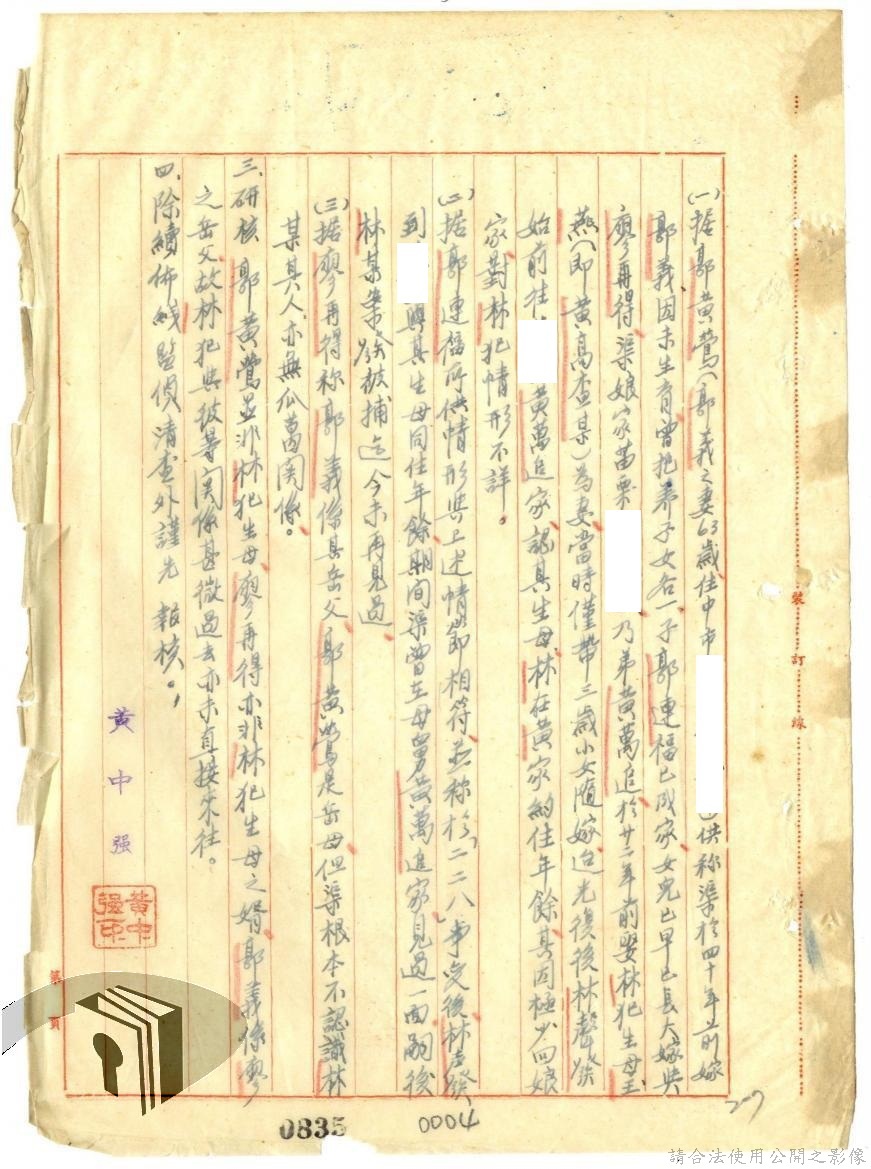 (一)据郭黄鶯(郭義之妻63歲住中市)供称渠於四十年前嫁
郭義因未生育曾抱养子女各一子郭連福已成家女兒已早已長大嫁與
廖再得渠娘家苗栗 乃弟黄萬追於廿二年前娶林犯生母玉
燕(即黄高查某)為妻當時僅帶三歲小女隨嫁迨光復後林聲發
始前往 黄萬追家認其生母林在黄家約住年餘其因極少回娘
家對林犯情形不詳。
(二)据郭連福所供情形與上述情節相符並称於二二八事变後林声發
到 與其生母同住年餘期间渠曾在母舅黄萬追家見過一面嗣後
林某案發被捕迄今未再見過
(三)据廖再得称郭義係其岳父郭黄鶯是岳母但渠根本不認識林
某其人亦無瓜葛関係。
三、研核郭黄鶯並非林犯生母廖再得亦非林犯生母之婿郭義係廖
之岳父故林犯與彼等関係甚微過去亦未直接來往。
四、除續佈綫監偵清查外謹先報核。
黄中强
黄中强印
裝訂線
第 頁
0835
0004
207
請合法使用公開之影像